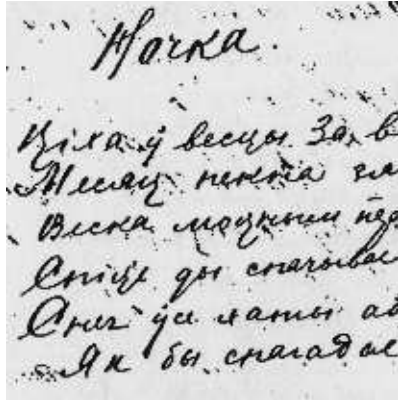 Ночка.
Ціха ў весцы За в
Месяц пекна гля
Веска моцным
Спіць ды спачывае
Снег ўсе хаты аб
Як бы спагадае